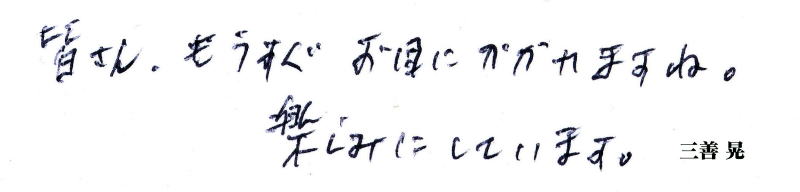 皆さん、もうすぐ お目に かかれますね。
楽しみにしています。 三善 晃